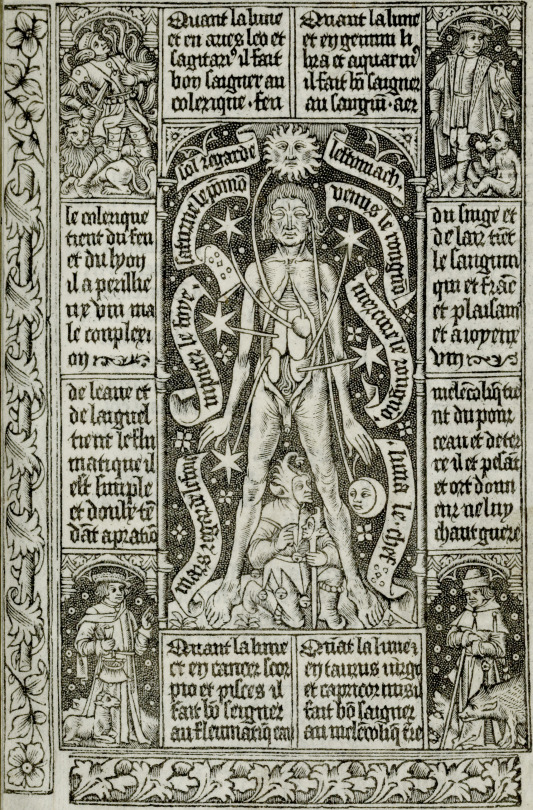 Quant la lune
et en aries leo et
sagitari⁹ il fait
bon saigner au
colerique. feu
Quant la lune
et en gemini li
bra et aquari⁹
il fait bõ saigner
au sanguĩ. aer
sol regarde
lestomach.
saturne le pomõ
venus le rongnõ
iupiter le foye.
mercure le rongnõ
mars regarde
luna le chef
le colerique
tient du feu
et du lyon
il a perilhe
ux vin ma
le conplexi
on
du singe et
de lair tiẽt
le sanguin
qui et frãc
et plaisant
et a ioyeux
vin
de leaue et
de laignel
tient le fleu
matique il
est simple
et doulx tẽ
dãt a pratiõ
melẽcoliq tie
nt du pour
ceau et de ter
re il et pesãt
et ort donn
eur ne luy
chaut guere
Quant la lune
et en cancer scor
pio et pisces il
fait bõ seigner
au fleumatiq eau
Quãt la lune
en taurus virgo
et capricornus il
fait bõ saigner
au melẽcoliq tre